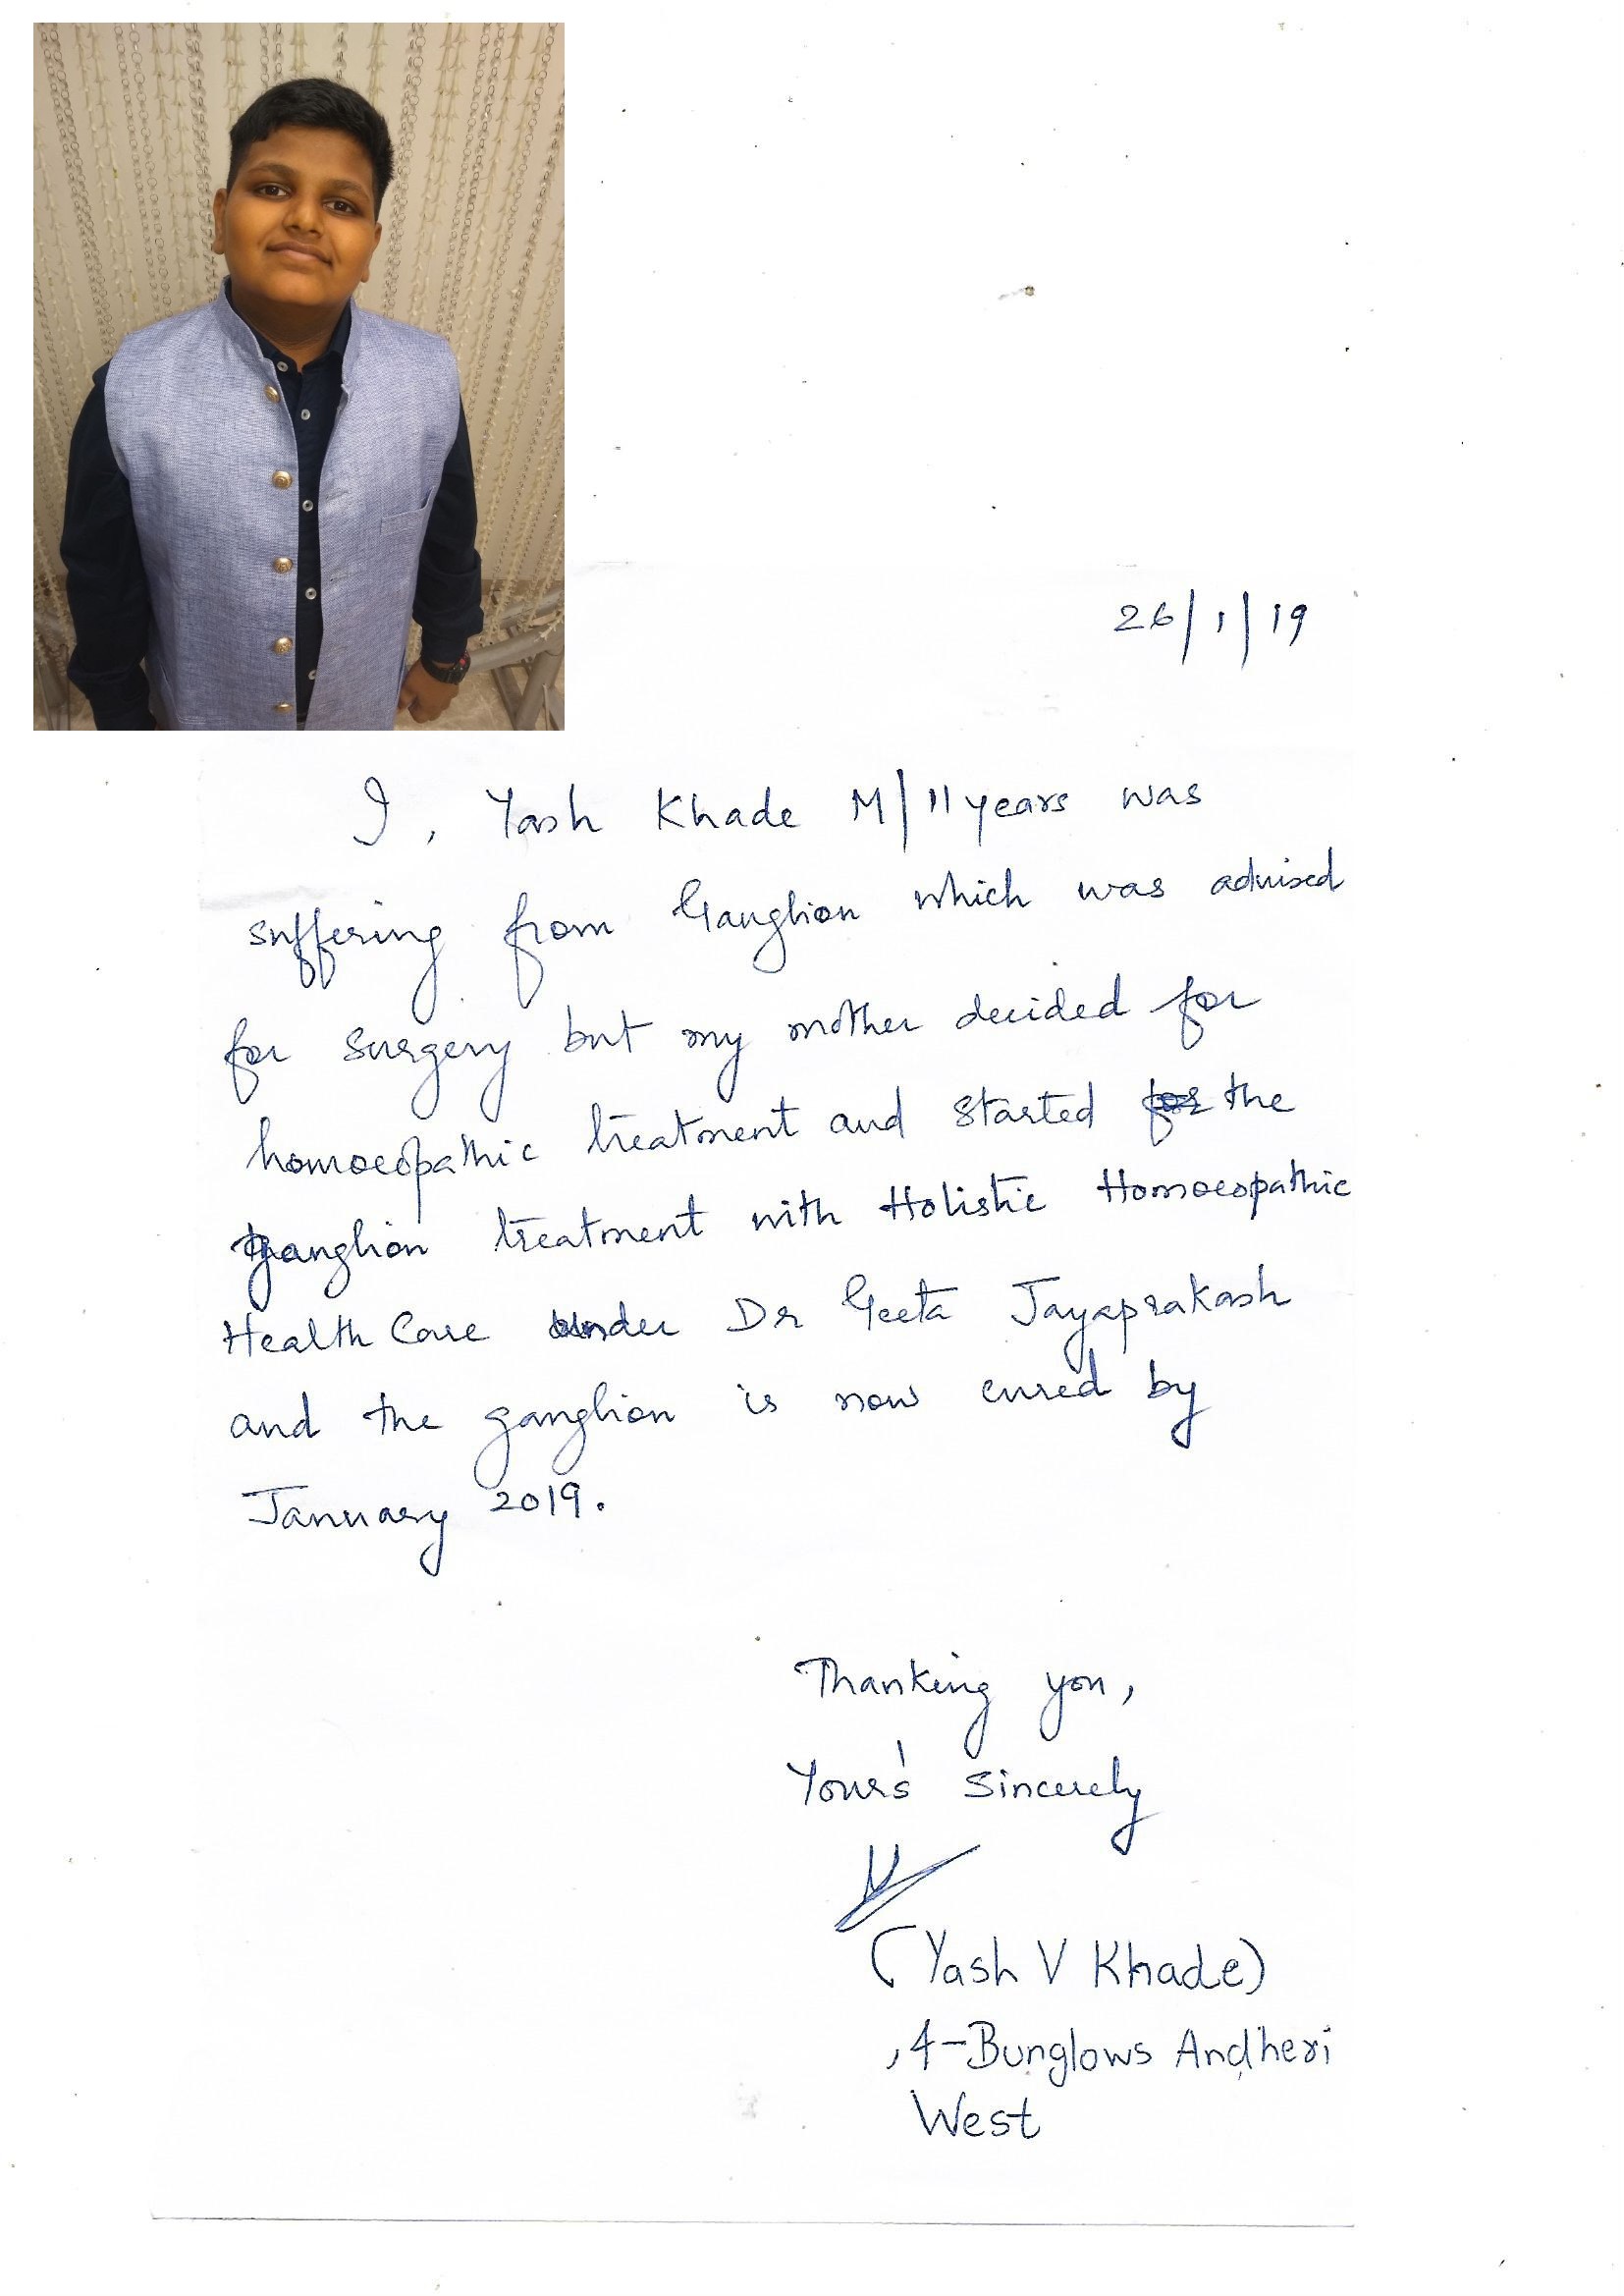 26/1/19
I, Yash Khade M/11 years was
suffering from Ganglion which was advised
for surgery but my mother decided for
homoeopathic treatment and started for the
ganglion treatment with Holistic Homoeopathic
Health Care under Dr Geeta Jayaprakash
and the ganglion is now cured by
January 2019.
Thanking you,
Your's Sincerely
(Yash V Khade)
,4-Bunglows Andheri
West